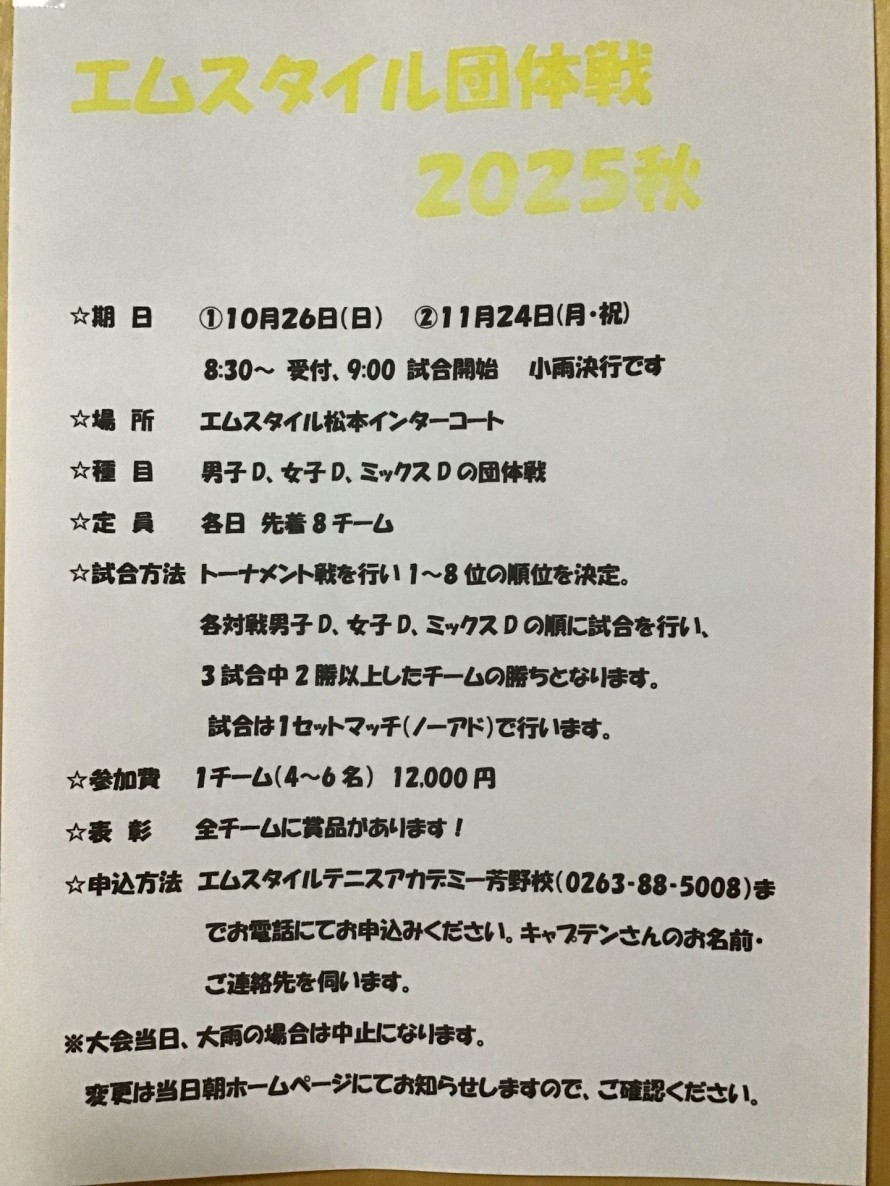 エムスタイル団体戦
2025秋
☆期 日 ①10月26日(日) ②11月24日(月・祝)
8:30～ 受付、9:00 試合開始 小雨決行です
☆場 所 エムスタイル松本インターコート
☆種 目 男子D、女子D、ミックスDの団体戦
☆定 員 各日 先着8チーム
☆試合方法 トーナメント戦を行い1～8位の順位を決定。
各対戦男子D、女子D、ミックスDの順に試合を行い、
3試合中2勝以上したチームの勝ちとなります。
試合は1セットマッチ(ノーアド)で行います。
☆参加費 1チーム(4～6名) 12,000円
☆表 彰 全チームに賞品があります！
☆申込方法 エムスタイルテニスアカデミー芳野校(0263-88-5008)ま
でお電話にてお申込みください。キャプテンさんのお名前・
ご連絡先を伺います。
※大会当日、大雨の場合は中止になります。
変更は当日朝ホームページにてお知らせしますので、ご確認ください。